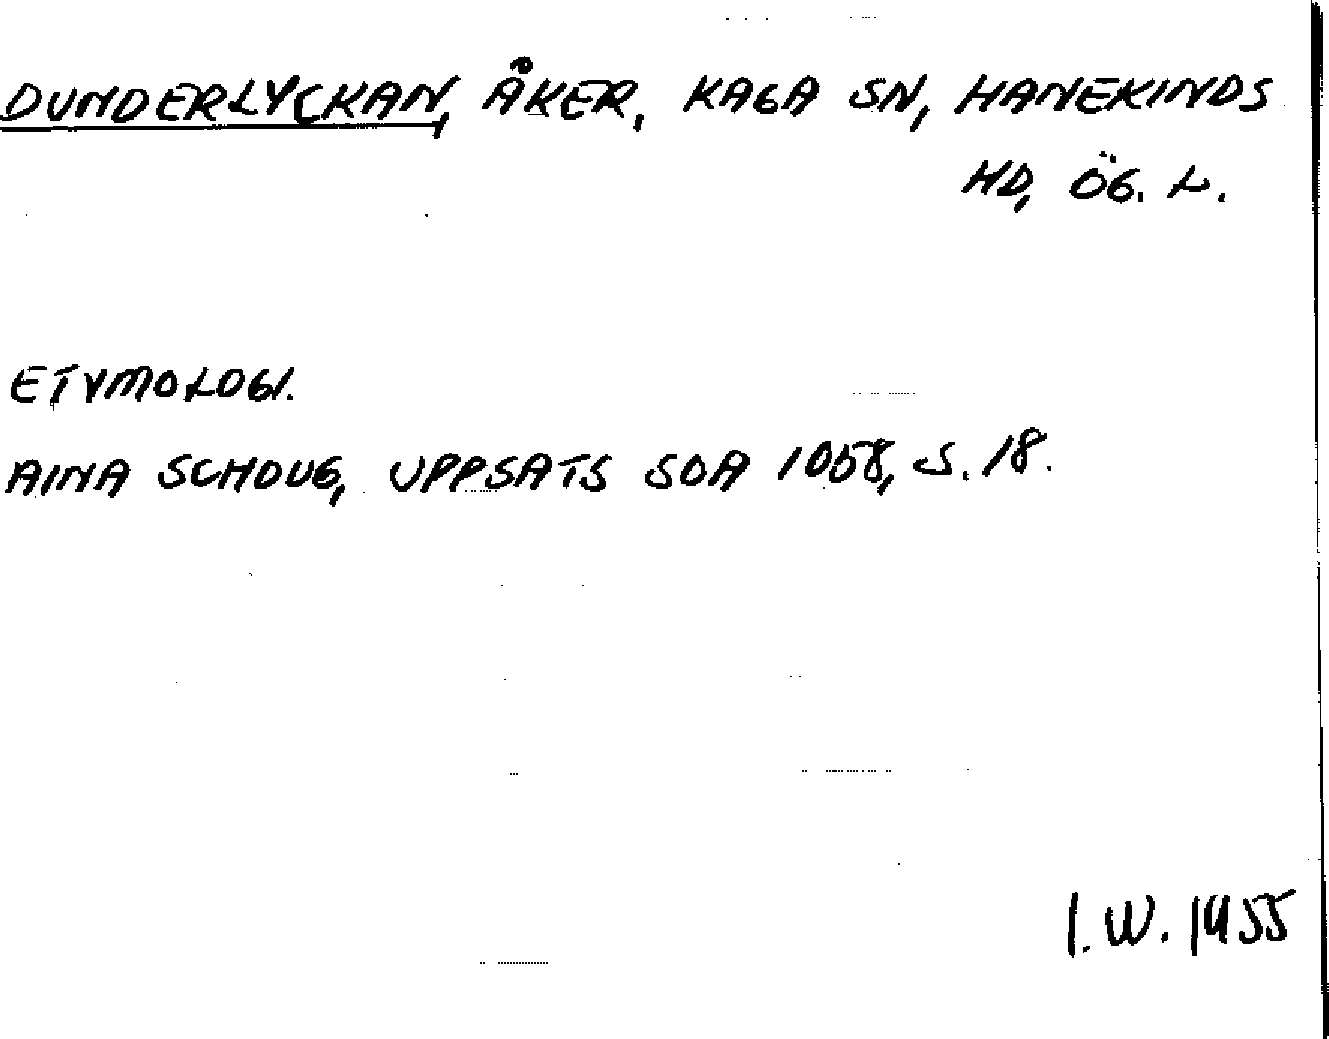 DUNDERLYCKAN, ÅKER, KAGA SN, HANEKINDS
HD, ÖG. L.
ETYMOLOGI.
AINA SCHOUG, UPPSATS SOA 1058, S. 18.
I. W. 1955